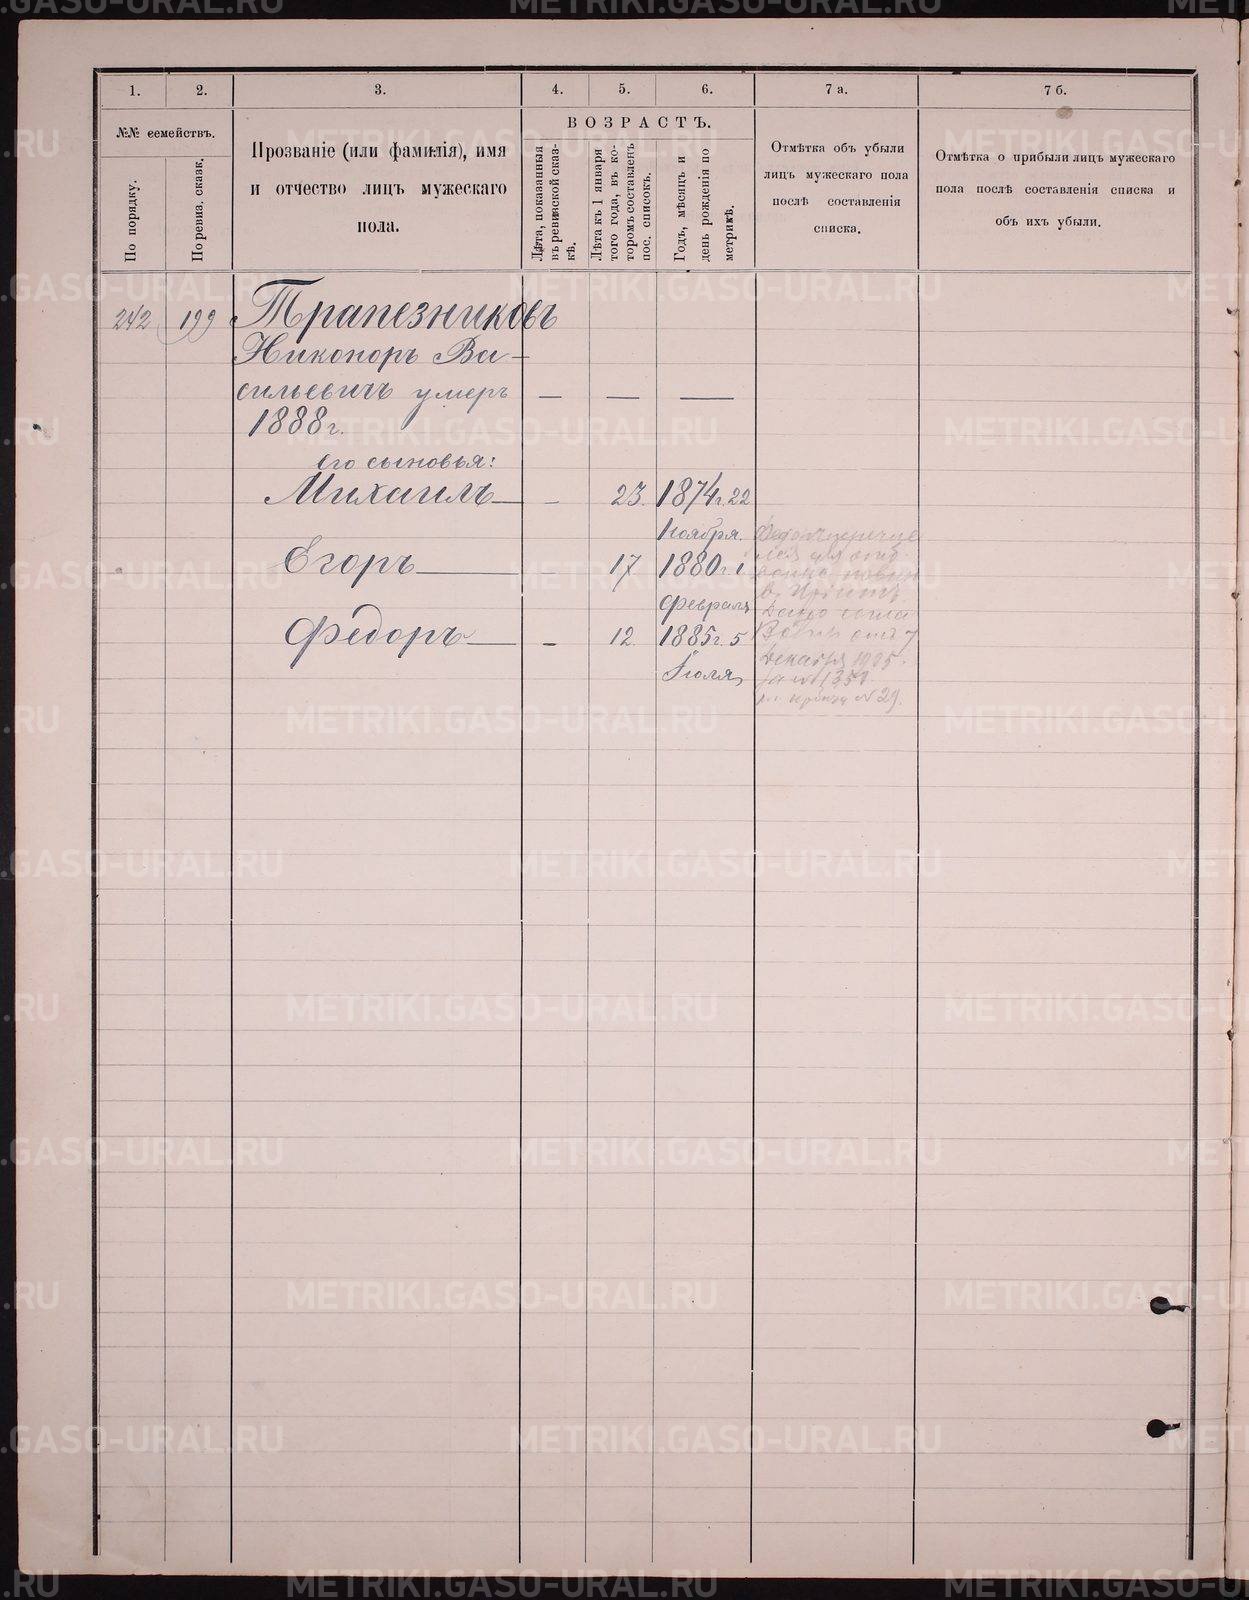 1.
2.
3.
4.
5.
6.
7 а.
7 б.
№№ семействъ.
По порядку.
По ревиз. сказк.
Прозваніе (или фамилія), имя
и отчество лицъ мужескаго
пола.
ВОЗРАСТЪ.
Лѣта, показанныя
въ ревизской сказ-
кѣ.
Лѣта къ 1 января
того года, въ ко-
торомъ составленъ
пос. списокъ.
Годъ, мѣсяцъ и
день рожденія по
метрикѣ.
Отмѣтка объ убыли
лицъ мужескаго пола
послѣ составленія
списка.
Отмѣтка о прибыли лицъ мужескаго
пола послѣ составленія списка и
объ ихъ убыли.
242 199 Трапезниковъ
Никоноръ Ва-
сильевичъ умеръ — — —
1888 г.
его сыновья:
Михаилъ — - 23. 1874 г. 22
Ноября.
Егоръ — - 17 1880 г. 1
Февраля
Федоръ — - 12. 1885 г. 5
Іюля
Декабря
METRIKI.GASO-URAL.RU